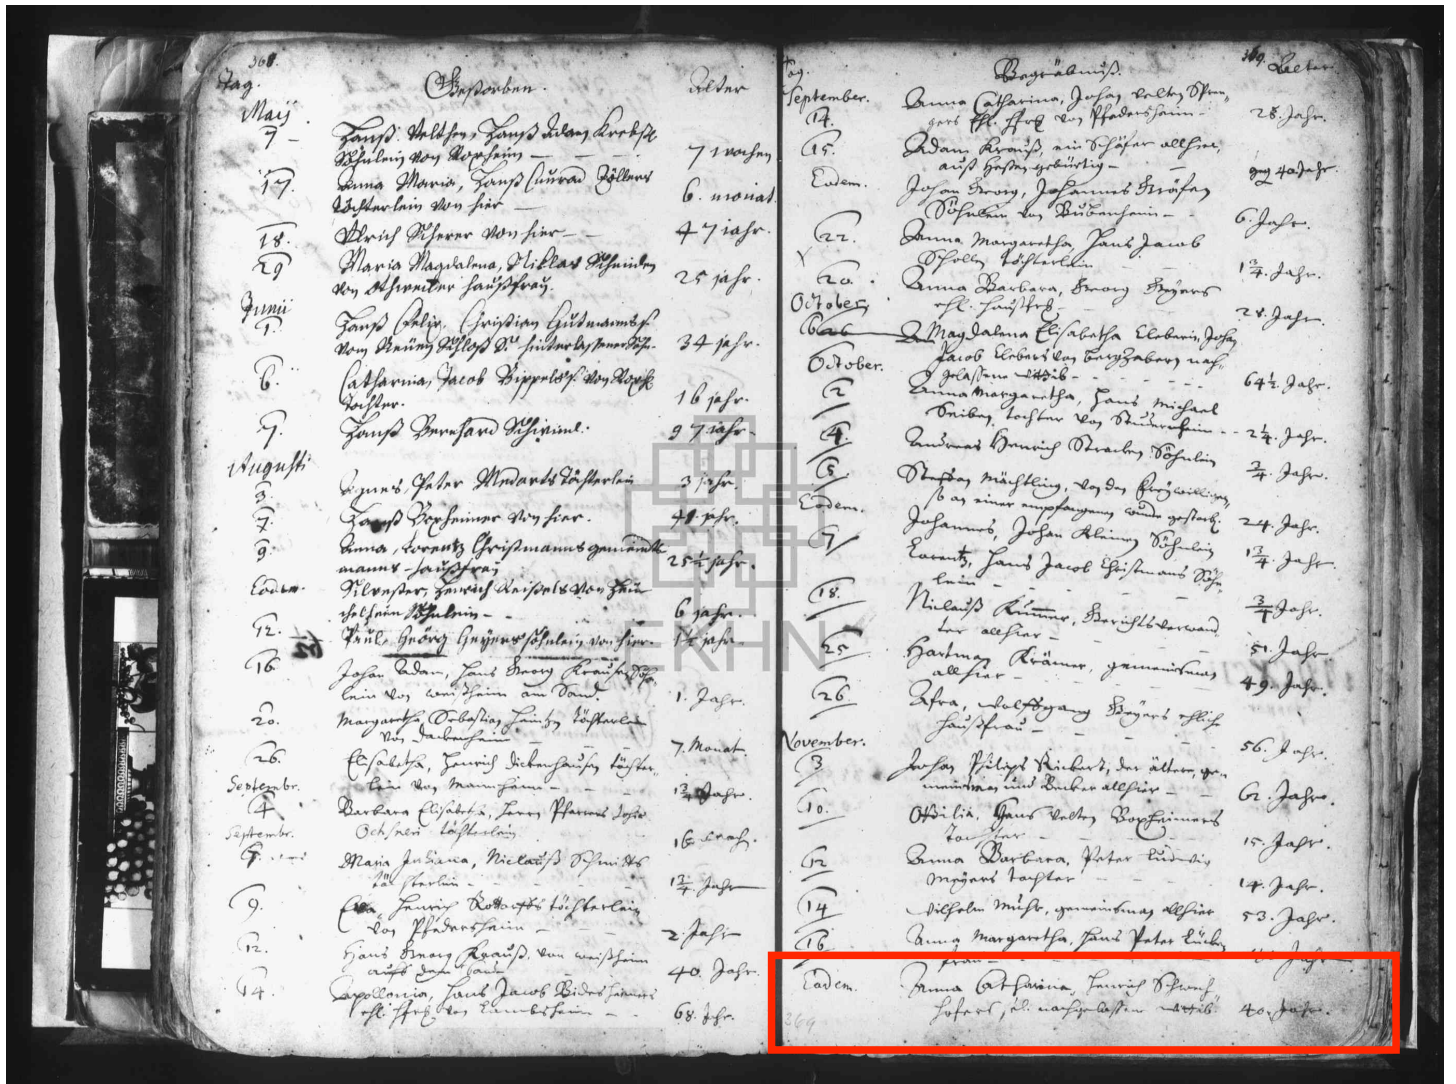 368.
Tag.
Gestorben.
Alter
Maij
7
Hanß Velthen, Hanß Adam Krebß
Söhnlein von Roxheim
7 wochen
17
Anna Maria, Hanß Cunrad Zöllers
Töchterlein von hier
6. monat.
18.
Ulrich Scherer von hier
47 jahr.
29
Maria Magdalena, Niklas Schneiders
von Othweiler haußfrau.
25 jahr.
Junii
1.
Hanß Felix, Christian Gutmanns
vom Neüen Schloß hinterlassener Sohn
34 jahr.
6.
Catharina, Jacob Bippels von Roxh.
Tochter.
16 jahr.
7.
Hanß Bernhard
97 jahr
Augusti
3.
Agnes, Peter Medarts Töchterlein
3 jahr.
7.
Hanß Boxheimer von hier.
41 jahr.
9.
Anna, Lorentz Christmanns gemeindts
manns haußfrau
25½ jahr.
Eodem.
Silvester, Henrich Reißels von
Söhnlein
6 jahr.
12.
Paul, Georg Geyers söhnlein von hier
1½ jahr.
16
Johan Adam, Hans Georg Kraußen Söhn
lein von weißheim am Sand
1. Jahr.
20.
Margaretha, Sebastian töchterlein
von
7. Monat
26.
Elisabetha, Henrich töchter
lein von Mannheim
1¾ Jahr.
Septembr.
4
Barbara Elisabetha, Herrn Pfarrers
töchterlein
16 woch.
Septembr.
7.
Maria Juliana, Niclauß Schmitts
töchterlein
1¾ Jahr
9.
Eva, Henrich töchterlein
von Pfedersheim
2. Jahr
12.
Hans Georg Krauß, von weißheim
auffs dem Sand
40. Jahr.
14.
Apollonia, Hans Jacob
ehl. hfr. von Lambsheim
68. Jahr.
369.
Tag.
Begräbnuß.
Alter
September.
14.
Anna Catharina, Johan Velten Spren
gers ehl. hfr. von Pfedersheim
28. Jahr.
15.
Adam Krauß, ein Schäfer allhier,
auß Hessen gebürtig
40 Jahr.
Eodem.
Johan Georg, Johannes Gräfen
Söhnlein von Bubenheim
6. Jahr.
22.
Anna Margaretha, Hans Jacob
Schollen töchterlein
1¾. Jahr.
20.
Anna Barbara, Georg Geyers
ehl. haußfr.
28. Jahr.
October
Magdalena Elisabetha Eleberin, Johan
October.
Jacob Elebers von Bergzabern nach
gelassene wittib
64½. Jahr.
2
Anna Margaretha, Hans Michael
Seiben, tochter von Studernheim
2¼. Jahr.
4.
Andreas Henrich Söhnlein
¾. Jahr.
5
Steffan Mächtling, von den freywilligen,
so an einer empfangenen wunde gestorb.
24. Jahr.
Eodem.
Johannes, Johan Kleinen Söhnlein
1¾. Jahr
7
Lorentz, Hans Jacob Christmans Söhn
lein
¾ Jahr.
18.
Niclauß Kummer, Gerichtsverwand
ter allhier
51. Jahr
25
Hartman Krämer, gemeinsman
allhier
49. Jahr.
26
Afra, Wolffgang Geyers ehliche
haußfrau
56. Jahr.
November.
3
Johan Philips Rickert, der ältere, ge
meinsman und Becker allhier
62. Jahr.
10.
Ottilia, Hans Velten Boxheimers
Tochter
15. Jahr.
12
Anna Barbara, Peter Ludwig
Meyers tochter
14. Jahr.
14
Wilhelm Muhr, gemeinsman allhier
53. Jahr.
16
Anna Margaretha, Hans Peter
frau
Jahr
Eodem.
Anna Catharina, Henrich
hofers sel. nachgelassene wittib
40. Jahr.
369
EKHN